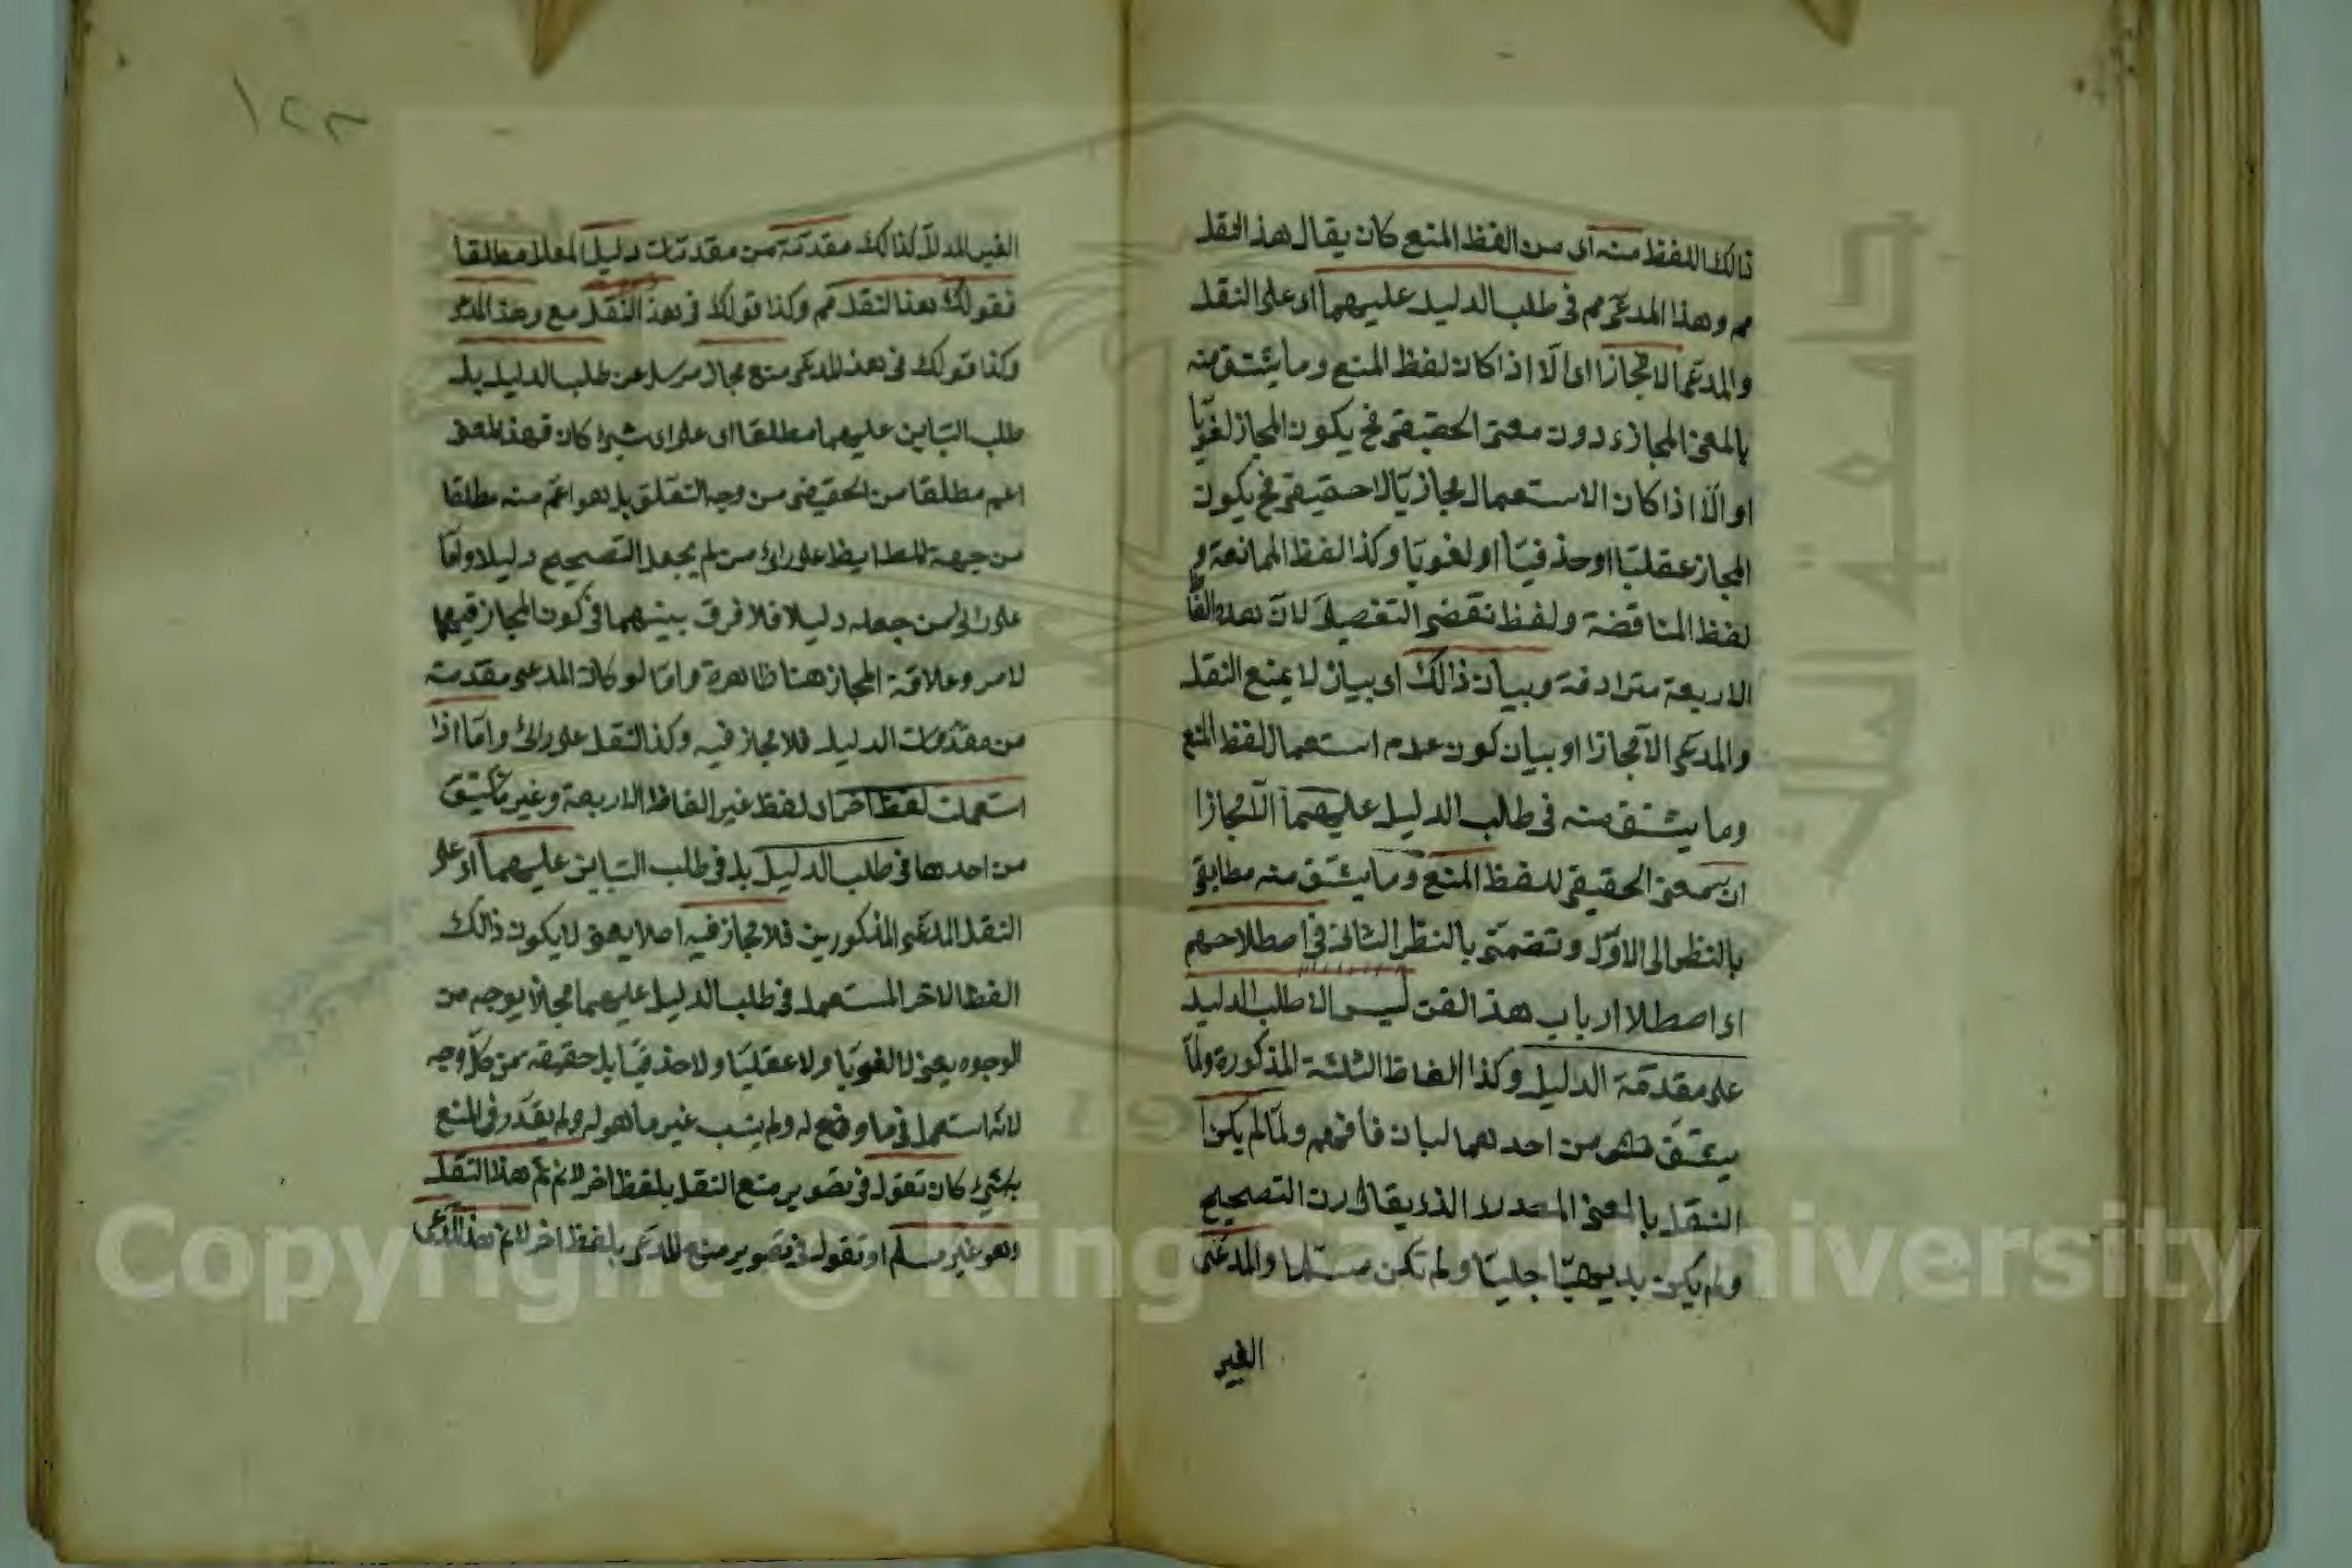 ذالك اللفظ منه اى من الفظ المنع كان يقال هذا النقل
مم وهذا المدعى مم فى طلب الدليل عليهما اى على النقل
والمدعى الا مجازا اى الا اذا كان لفظ المنع وما يشتق منه
بالمعنى المجازى دون معنى الحقيقى فح يكون المجاز لغويا
او الا اذا كان الاستعمال مجازيا لا حقيقى فح يكون
المجاز عقليا او حذفيا او لغويا وكذا لفظ الممانعة و
لفظ المناقضة ولفظ نقضى التفصيلى لان هذه الفا
الاربعة مترادفة وبيان ذالك اى بيان لا يمنع النقل
والمدعى الا مجازا او بيان كون عدم استعمال لفظ المنع
وما يشتق منه فى طلب الدليل عليهما الا مجازا
ان معنى الحقيقى للفظ المنع وما يشتق منه مطابقى
بالنظر الى الاول وتضمنى بالنظر الثانى فى اصطلاحهم
اى اصطلا ارباب هذ الفن ليس الا طلب الدليل
على مقدمة الدليل وكذا الفاظ الثلثة المذكورة ولما
يشتق من احدهما لبيان فافهم ولما لم يكن
النقل بالمعنى المصدرى الذى يقال التصحيح
ولم يكن بديهيا جليا ولم تكن مسلما والمدعى
الغير
١٢٣
الغير المدلل كذالك مقدمة من مقدمات دليل المعلل مطلقا
فقولك هذا النقل مم وكذا قولك فى هذ النقل منع وهذ المدعى
وكذا قولك فى هذ المدعى منع مجاز مرسل عن طلب الدليل بل
طلب التباين عليهما مطلقا اى على اى شئ كان فهذ المعنى
اعم مطلقا من الحقيقى من وجه التعلق بل هو اعم منه مطلقا
من جهة المط ايضا على رائ من لم يجعل التصحيح دليلا واما
على رائ من جعله دليلا فلا فرق بينهما فى كون المجاز فيهما
لامر وعلاقة المجاز هنا ظاهرة واما لو كان المدعى مقدمة
من مقدمات الدليل فلا مجاز فيه وكذا النقل على رائ واما اذا
استعملت لفظ اخر اى لفظ غير الفاظ الاربعة وغير ما يشتق
من احدها فى طلب الدليل بل فى طلب التباين عليهما اى على
النقل المدعى المذكورين فلا مجاز فيه اصلا يعنى لا يكون ذالك
الفظ الاخر المستعمل فى طلب الدليل عليهما مجازا بوجه من
الوجوه يعنى لا لغويا ولا عقليا ولا حذفيا بل حقيقة من كل وجه
لانه استعمل فى ما وضع له ولم ينسب غير ما هو له ولم يقدر فى المنع
بشئ كان تقول فى تصوير منع النقل بلفظ اخر لانم هذا النقل
وهو غير مسلم او تقول فى تصوير منع المدعى بلفظ اخر لانم هذ المدعى
Copyright © King Saud University